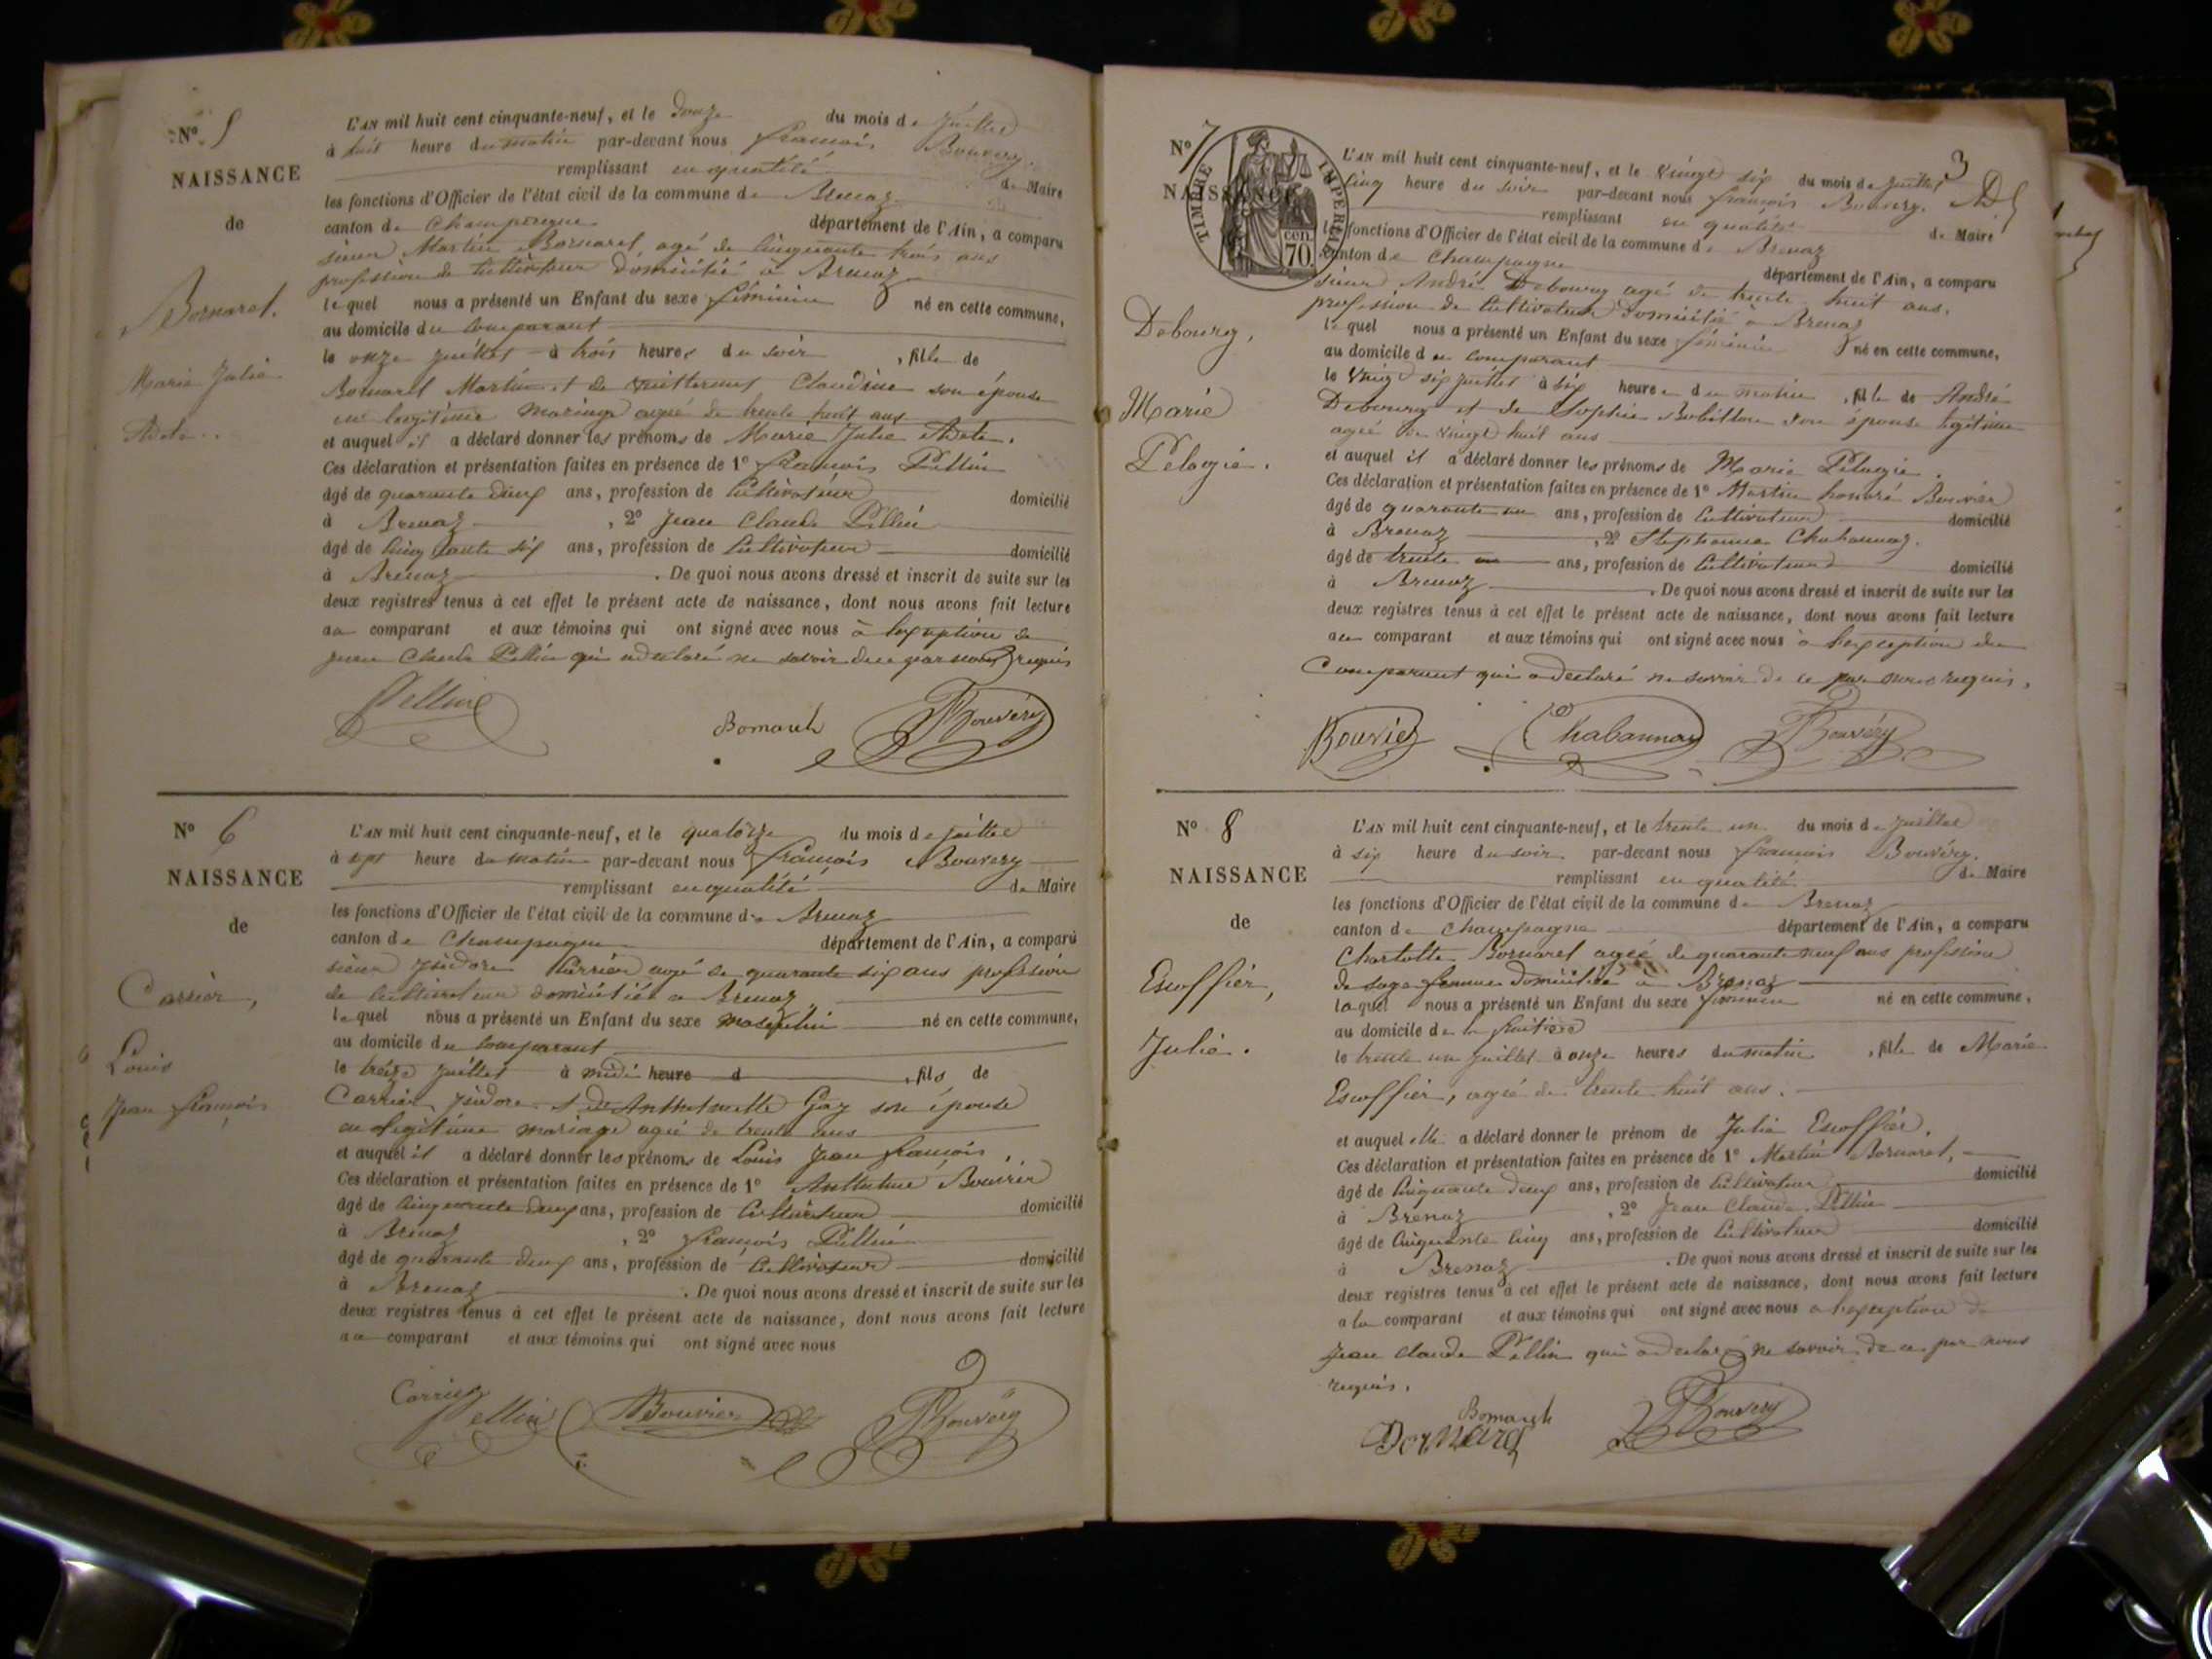 N° 5
NAISSANCE
de
Bornarel.
Marie Julie
Adele.
L'AN mil huit cent cinquante-neuf, et le douze du mois de juillet
à huit heure du matin par-devant nous françois Bouvery.
remplissant en qualité de Maire
les fonctions d'Officier de l'état civil de la commune de Brenaz
canton de Champagne département de l'Ain, a comparu
sieur Martin Bornarel agé de cinquante trois ans
profession de cultivateur domicilié à Brenaz
lequel nous a présenté un Enfant du sexe féminin né en cette commune,
au domicile du comparant
le onze juillet à trois heures du soir, fille de
Bornarel Martin et de Claudine son épouse
en légitime mariage agée de trente huit ans
et auquel il a déclaré donner les prénoms de Marie Julie Adele.
Ces déclaration et présentation faites en présence de 1° françois Pellin
âgé de quarante deux ans, profession de cultivateur domicilié
à Brenaz, 2° Jean Claude Pellin
âgé de cinquante six ans, profession de cultivateur domicilié
à Brenaz. De quoi nous avons dressé et inscrit de suite sur les
deux registres tenus à cet effet le présent acte de naissance, dont nous avons fait lecture
au comparant et aux témoins qui ont signé avec nous à l'exception de
jean Claude Pellin qui a déclaré ne savoir de ce par nous requis
Pellin Bornarel Bouvery
N° 6
NAISSANCE
de
Carrier,
Louis
Jean françois
L'AN mil huit cent cinquante-neuf, et le quatorze du mois de juillet
à sept heure du matin par-devant nous françois Bouvery
remplissant en qualité de Maire
les fonctions d'Officier de l'état civil de la commune de Brenaz
canton de Champagne département de l'Ain, a comparu
sieur jsidore Carrier agé de quarante six ans profession
de cultivateur domicilié a Brenaz
lequel nous a présenté un Enfant du sexe masculin né en cette commune,
au domicile du comparant
le treize juillet à midi heure d, fils de
Carrier jsidore et de Anthelmette Gay son épouse
en légitime mariage agée de trente ans
et auquel il a déclaré donner les prénoms de Louis Jean françois.
Ces déclaration et présentation faites en présence de 1° Anthelme Bouvier
âgé de cinquante deux ans, profession de cultivateur domicilié
à Brenaz, 2° françois Pellin
âgé de quarante deux ans, profession de cultivateur domicilié
à Brenaz. De quoi nous avons dressé et inscrit de suite sur les
deux registres tenus à cet effet le présent acte de naissance, dont nous avons fait lecture
au comparant et aux témoins qui ont signé avec nous
Carrier
Pellin Bouvier Bouvery
3
N° 7
NAISSANCE
TIMBRE IMPERIAL
70 cen.
Debourg,
Marie
Pelagie.
L'AN mil huit cent cinquante-neuf, et le vingt six du mois de juillet
à cinq heure du soir par-devant nous françois Bouvery.
remplissant en qualité de Maire
les fonctions d'Officier de l'état civil de la commune de Brenaz
canton de Champagne département de l'Ain, a comparu
sieur André Debourg agé de trente huit ans,
profession de cultivateur domicilié à Brenaz
lequel nous a présenté un Enfant du sexe féminin né en cette commune,
au domicile du comparant
le vingt six juillet à six heure du matin, fille de André
Debourg et de Sophie son épouse légitime
agée de vingt huit ans
et auquel il a déclaré donner les prénoms de Marie Pelagie.
Ces déclaration et présentation faites en présence de 1° Martin honoré Bouvier
âgé de quarante un ans, profession de cultivateur domicilié
à Brenaz, 2° Stephanne Chabannaz.
âgé de trente ans, profession de cultivateur domicilié
à Brenaz. De quoi nous avons dressé et inscrit de suite sur les
deux registres tenus à cet effet le présent acte de naissance, dont nous avons fait lecture
au comparant et aux témoins qui ont signé avec nous à l'exception du
Comparant qui a déclaré ne savoir de ce par nous requis.
Bouvier Chabannaz Bouvéry
N° 8
NAISSANCE
de
Escoffier,
Julie.
L'AN mil huit cent cinquante-neuf, et le trente un du mois de juillet
à six heure du soir par-devant nous françois Bouvéry.
remplissant en qualité de Maire
les fonctions d'Officier de l'état civil de la commune de Brenaz
canton de Champagne département de l'Ain, a comparu
Charlotte Bornarel agée de quarante neuf ans profession
de sage femme domiciliée à Brenaz
laquel nous a présenté un Enfant du sexe féminin né en cette commune,
au domicile de la fruitière
le trente un juillet à onze heures du matin, fille de Marie
Escoffier, agée de trente huit ans.
et auquel elle a déclaré donner le prénom de Julie Escoffier.
Ces déclaration et présentation faites en présence de 1° Martin Bornarel,
âgé de cinquante deux ans, profession de cultivateur domicilié
à Brenaz, 2° Jean Claude Pellin
âgé de cinquante cinq ans, profession de cultivateur domicilié
à Brenaz. De quoi nous avons dressé et inscrit de suite sur les
deux registres tenus à cet effet le présent acte de naissance, dont nous avons fait lecture
a la comparant et aux témoins qui ont signé avec nous a l'exception de
Jean claude Pellin qui a déclaré ne savoir de ce par nous
requis.
Bornarel
Bornarel Bouvery